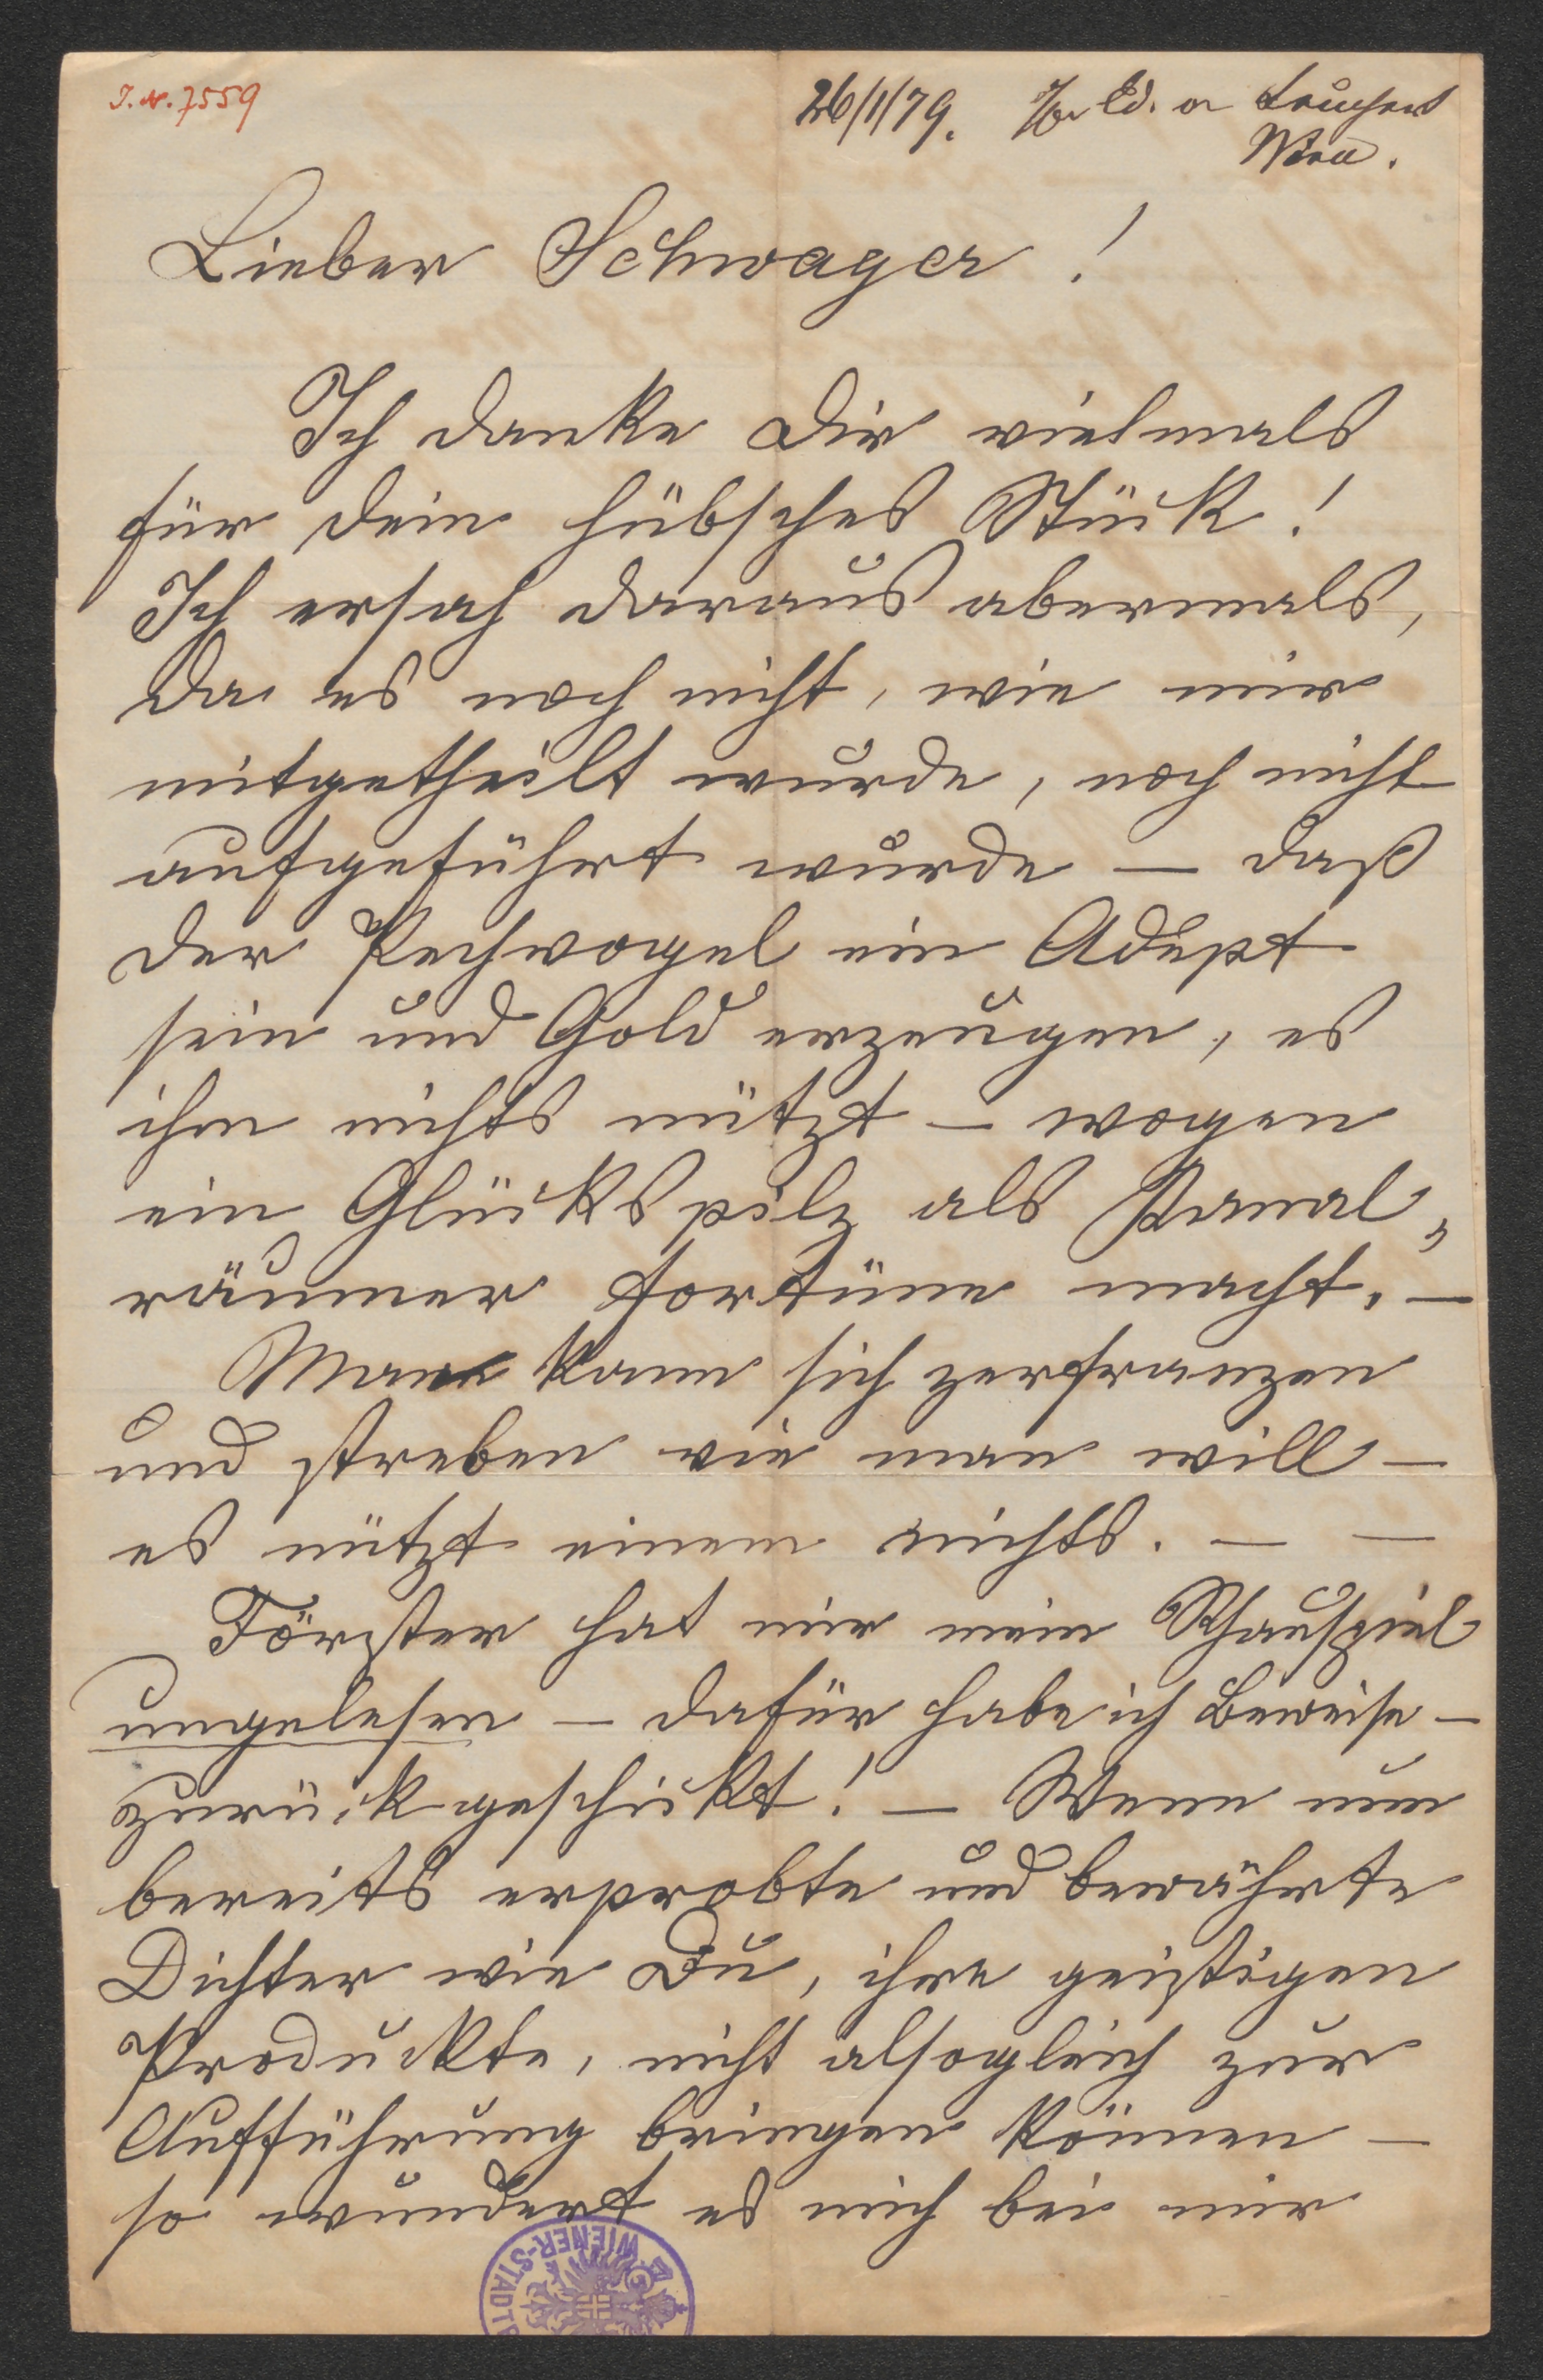 I. N. 7559
26/1/79. Ed.
Wien.
Lieber Schwager!
Ich danke Dir vielmals
für Dein hübsches Stück!
Ich ersah daraus abermals,
da es noch nicht, wie mir
mitgetheilt wurde, noch nicht
aufgeführt wurde — daß
der Pechvogel ein Adept
sein und Gold erzeugen, es
ihm nichts nützt — wogen
ein Glückspilz als Kanal-
räumer fortüne macht. —
Man kann sich zerfranzen
und streben wie man will —
es nützt einem nichts. — —
Förster hat mir mein Schauspiel
ungelesen — dafür habe ich Beweise —
zurückgeschickt! — Wenn nun
bereits erprobte und bewährte
Dichter wie Du, ihre geistigen
Produckte, nicht alsogleich zur
Aufführung bringen können —
so wundert es mich bei mir
WIENER-STADT